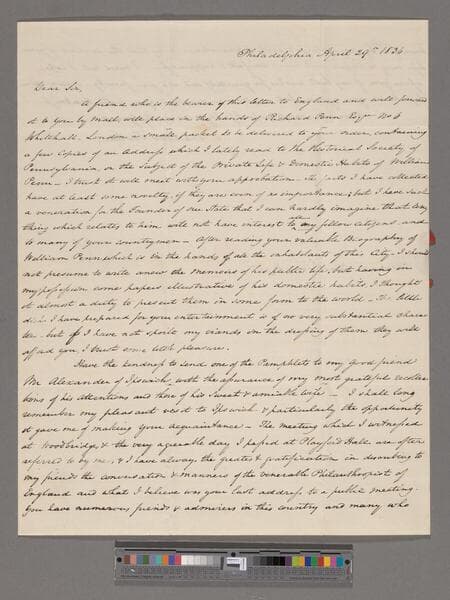 Philadelphia April 29th 1836
Dear Sir,
A friend who is the bearer of this letter to England and will forward
it to you by Mail, will place in the hands of Richard Penn Esqr No 6
Whitehall, London a small packet to be delivered to your order, containing
a few copies of an Address which I lately read to the Historical Society of
Pennsylvania, on the subject of the Private Life & Domestic Habits of William
Penn. I trust it will meet with your approbation. The facts I have collected
have at least some novelty, if they are even of no importance; but I have such
a veneration for the Founder of our State that I can hardly imagine that any
thing which relates to him will not have interest to all my fellow citizens, and
to many of your countrymen – After reading your valuable Biography of
William Penn which is in the hands of all the inhabitants of this City, I should
not presume to write anew the memoirs of his public life, but having in
my possession some papers illustrative of his domestic habits, I thought
it almost a duty to present them in some form to the world – The little
dish I have prepared for your entertainment is of no very substantial charac-
ter – but if I have not spoilt my viands in the dressing of them they will
afford you, I trust some little pleasure.
Have the kindness to send one of the Pamphlets to my good friend
Mr Alexander of Ipswich, with the assurance of my most grateful recollec-
tions of his attentions and those of his sweet & amiable wife – I shall long
remember my pleasant visit to Ipswich & particularly the opportunity
it gave me of making your acquaintance – The meeting which I witnessed
at Woodbridge, & the very agreeable day I passed at Playford Hall are often
referred to by me, & I have always the greatest gratification in describing to
my friends the conversation & manners of the venerable Philanthropist of
England and what I believe was your last address to a public meeting.
You have numerous friends & admirers in this country and many who